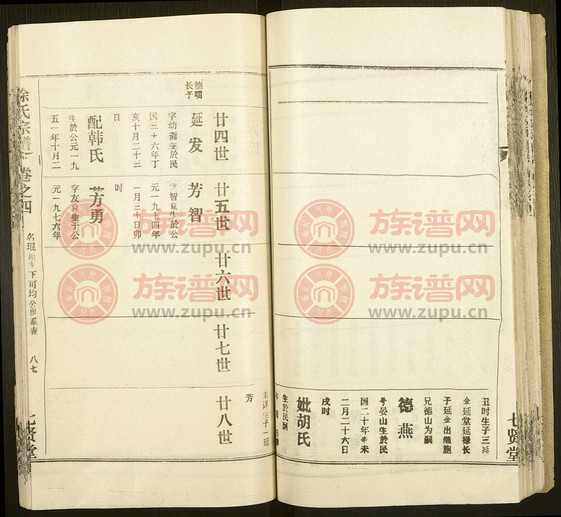 七贤堂
丑时生子三延
金延堂延禄长
子延金出继胞
兄德山为嗣
德燕
号公山生於民
国二十年辛未
二月二十六日
戌时
妣胡氏
生於民国
徐氏宗谱
卷之四
八七
七贤堂
廿四世
廿五世
廿六世
廿七世
廿八世
德明
长子
延发
字幼斋生於民
国三十六年丁
亥十月二十三
日
配韩氏
生於公元一九
五一年十月二
芳智
生於公
元一九七四年
一月二十日卯
时
芳勇
字友
生于公
元一九七六年
芳
族谱网
www.zupu.cn
族谱网
www.zupu.cn
族谱网
www.zupu.cn
族谱网
www.zupu.cn